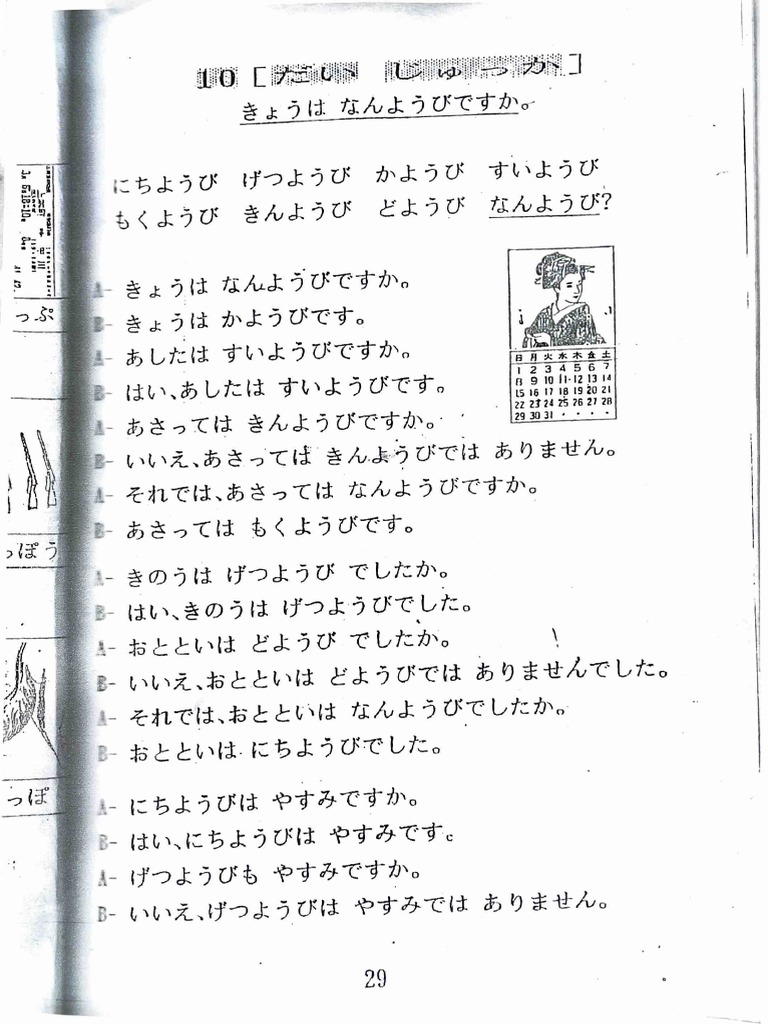 10 [だい じゅっか]
きょうは なんようびですか。
にちようび げつようび かようび すいようび
もくようび きんようび どようび なんようび?
A- きょうは なんようびですか。
B- きょうは かようびです。
A- あしたは すいようびですか。
B- はい、あしたは すいようびです。
A- あさっては きんようびですか。
B- いいえ、あさっては きんようびでは ありません。
A- それでは、あさっては なんようびですか。
B- あさっては もくようびです。
A- きのうは げつようび でしたか。
B- はい、きのうは げつようびでした。
A- おとといは どようび でしたか。
B- いいえ、おとといは どようびでは ありませんでした。
A- それでは、おとといは なんようびでしたか。
B- おとといは にちようびでした。
A- にちようびは やすみですか。
B- はい、にちようびは やすみです。
A- げつようびも やすみですか。
B- いいえ、げつようびは やすみでは ありません。
日 月 火 水 木 金 土
1 2 3 4 5 6 7
8 9 10 11 12 13 14
15 16 17 18 19 20 21
22 23 24 25 26 27 28
29 30 31
っぷ
っぽう
っぽ
29